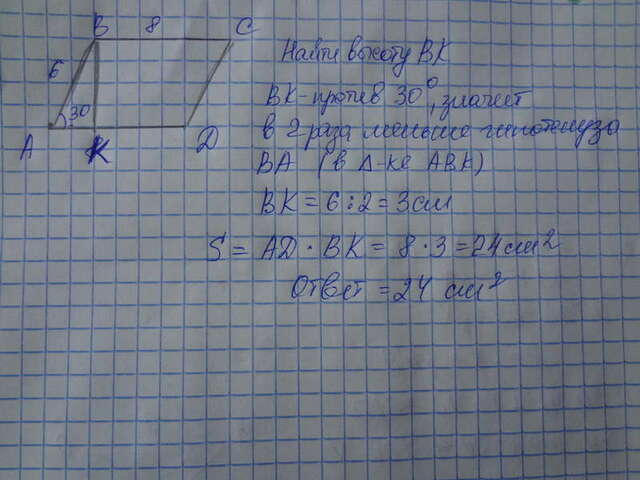 B 8 C
6
30
A K D
Найти высоту BK
BK-против 30°, значит
в 2 раза меньше гипотенуза
BA (в Δ-ке ABK)
BK = 6 : 2 = 3 см
S = AD · BK = 8 · 3 = 24 см²
Ответ = 24 см²